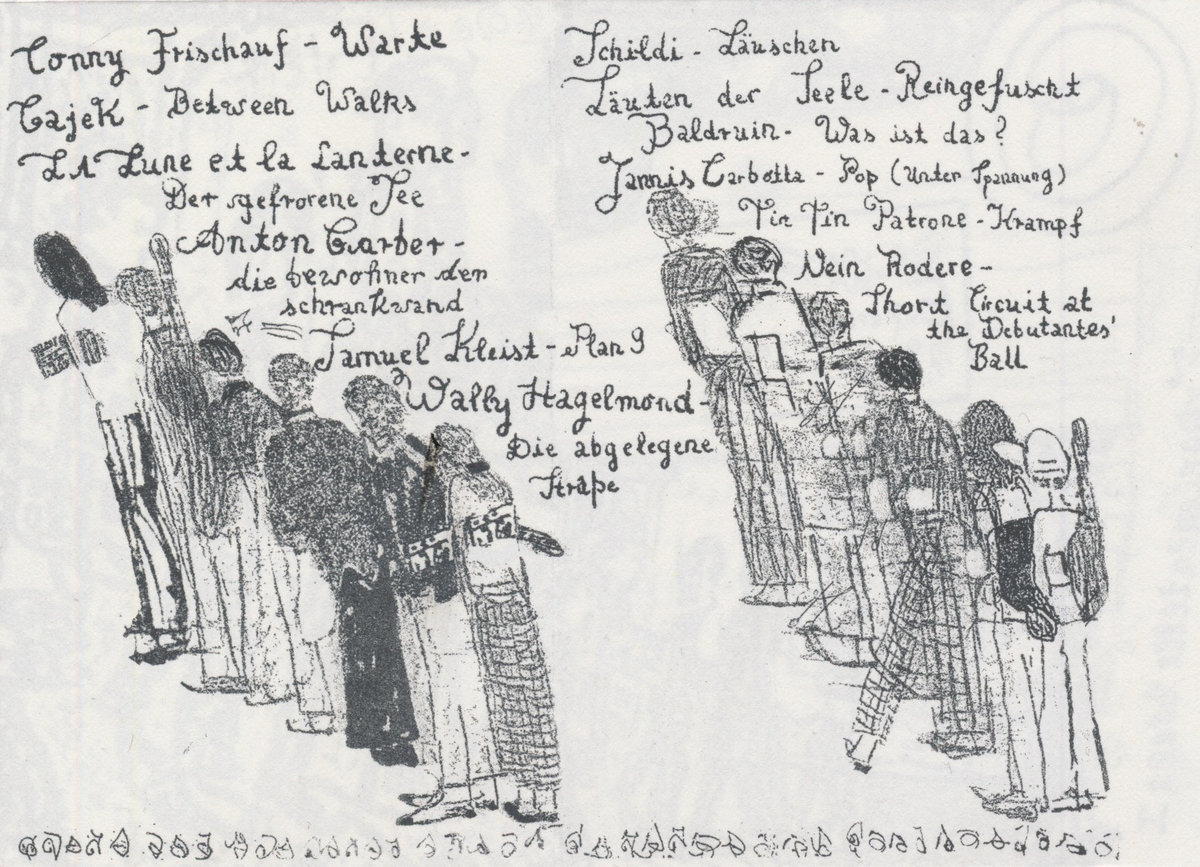 Conny Frischauf - Warte
Cajek - Between Walks
LA Lune et la Lanterne -
Der gefrorene See
Anton Garber -
die bewohner der
schrankwand
Samuel Kleist - Plan 9
Wally Hagelmond -
Die abgelegene
Straße
Schildi - Läuschen
Läuten der Seele - Reingefuscht
Baldruin - Was ist das?
Jannis Carbotta - Pop (Unter Spannung)
Tin Tin Patrone - Krampf
Nein Rodere -
Short Circuit at
the Debutantes'
Ball